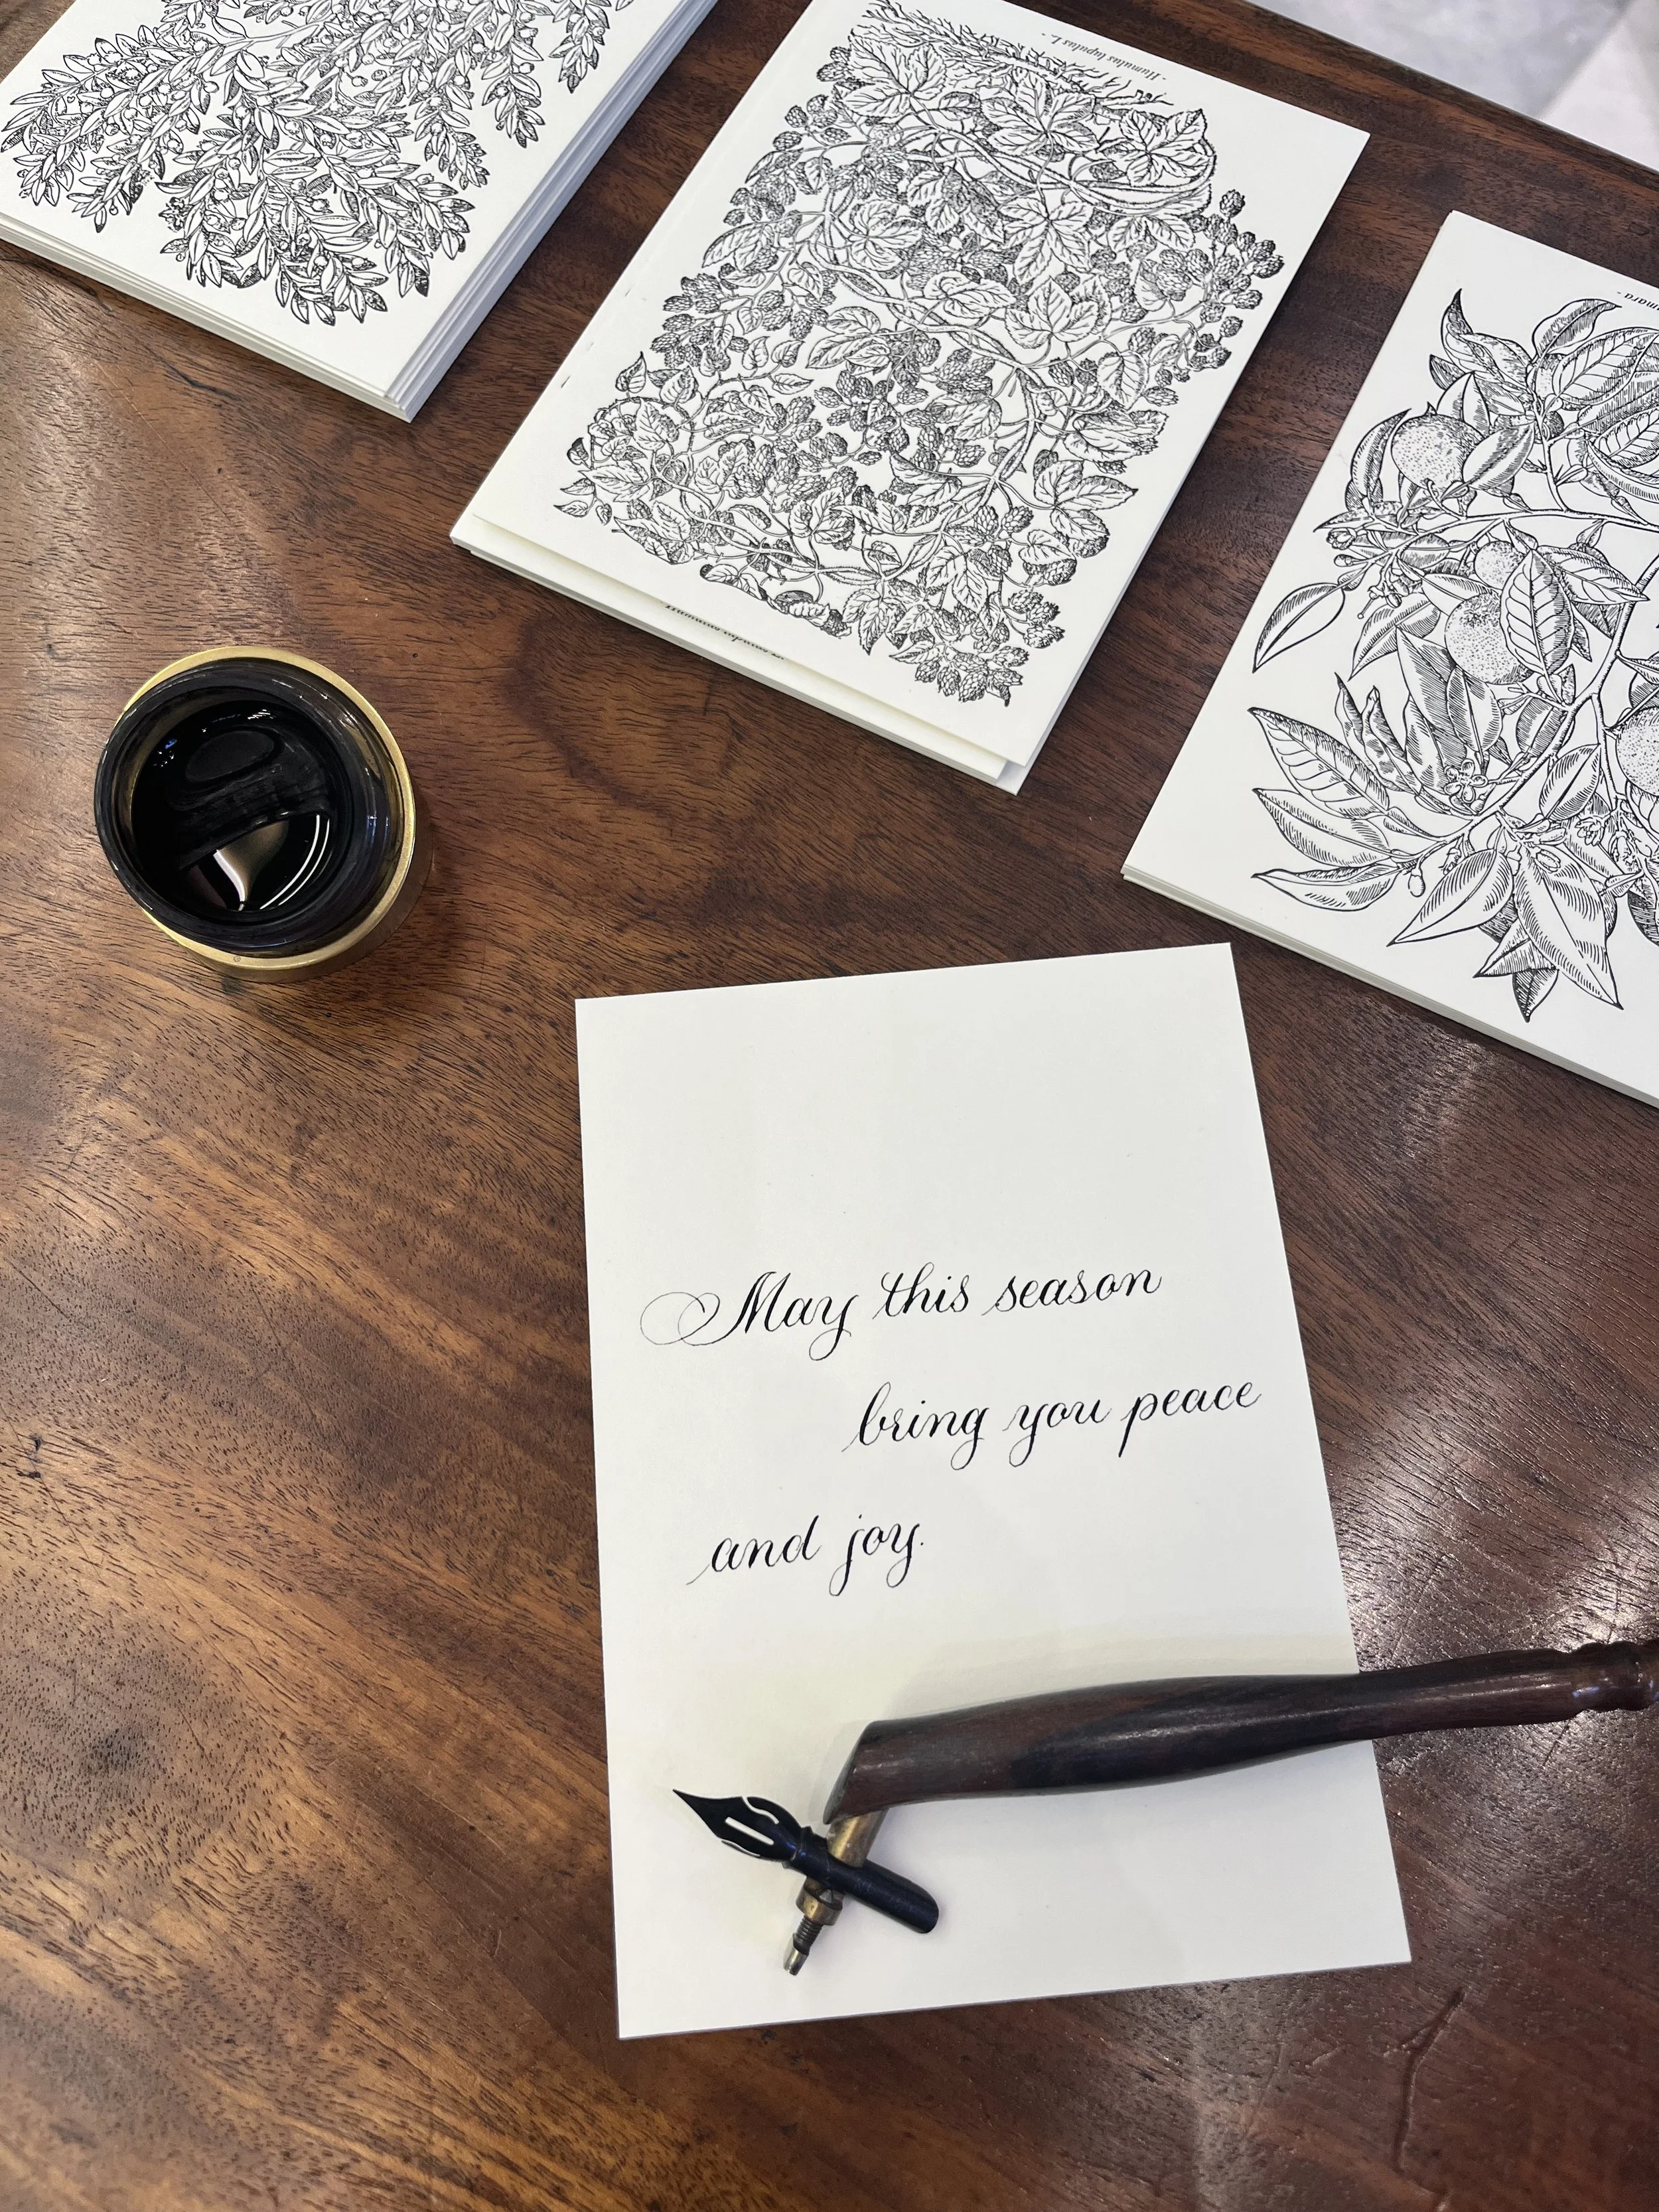 - Humulus lupulus L. -
May this season
bring you peace
and joy.